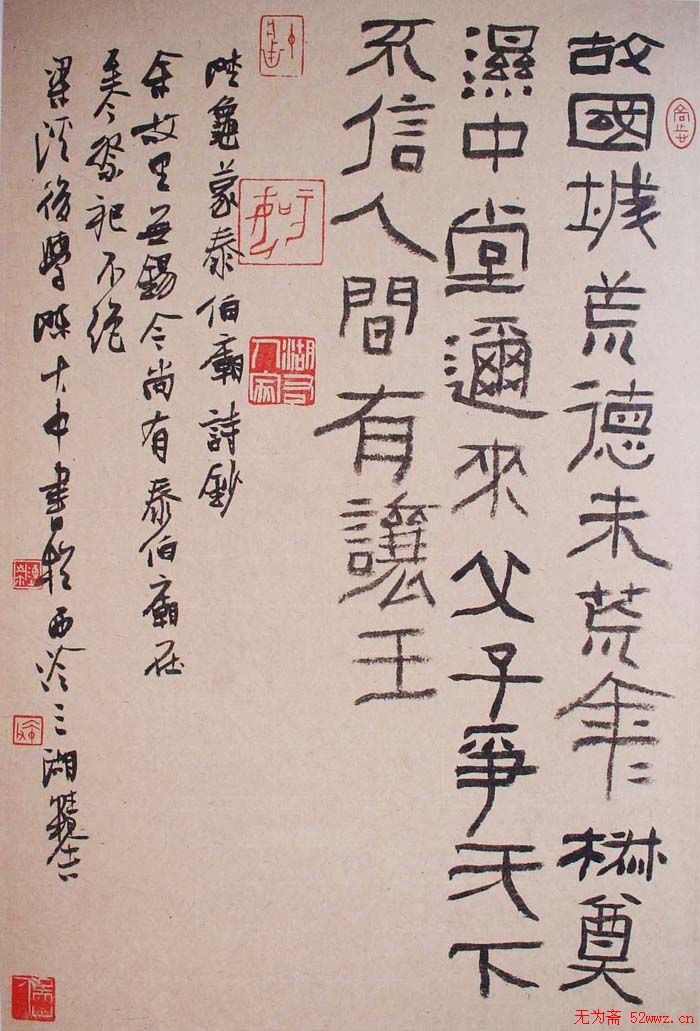 故國城荒德未荒年〻椒奠
濕中堂邇來父子爭天下
不信人間有讓王
陸龜蒙泰伯廟詩鈔
余故里無錫今尚有泰伯廟在
至今祭祀不絕
梁溪後學陳大中書於西泠三湖
无为斋 52wwz.cn